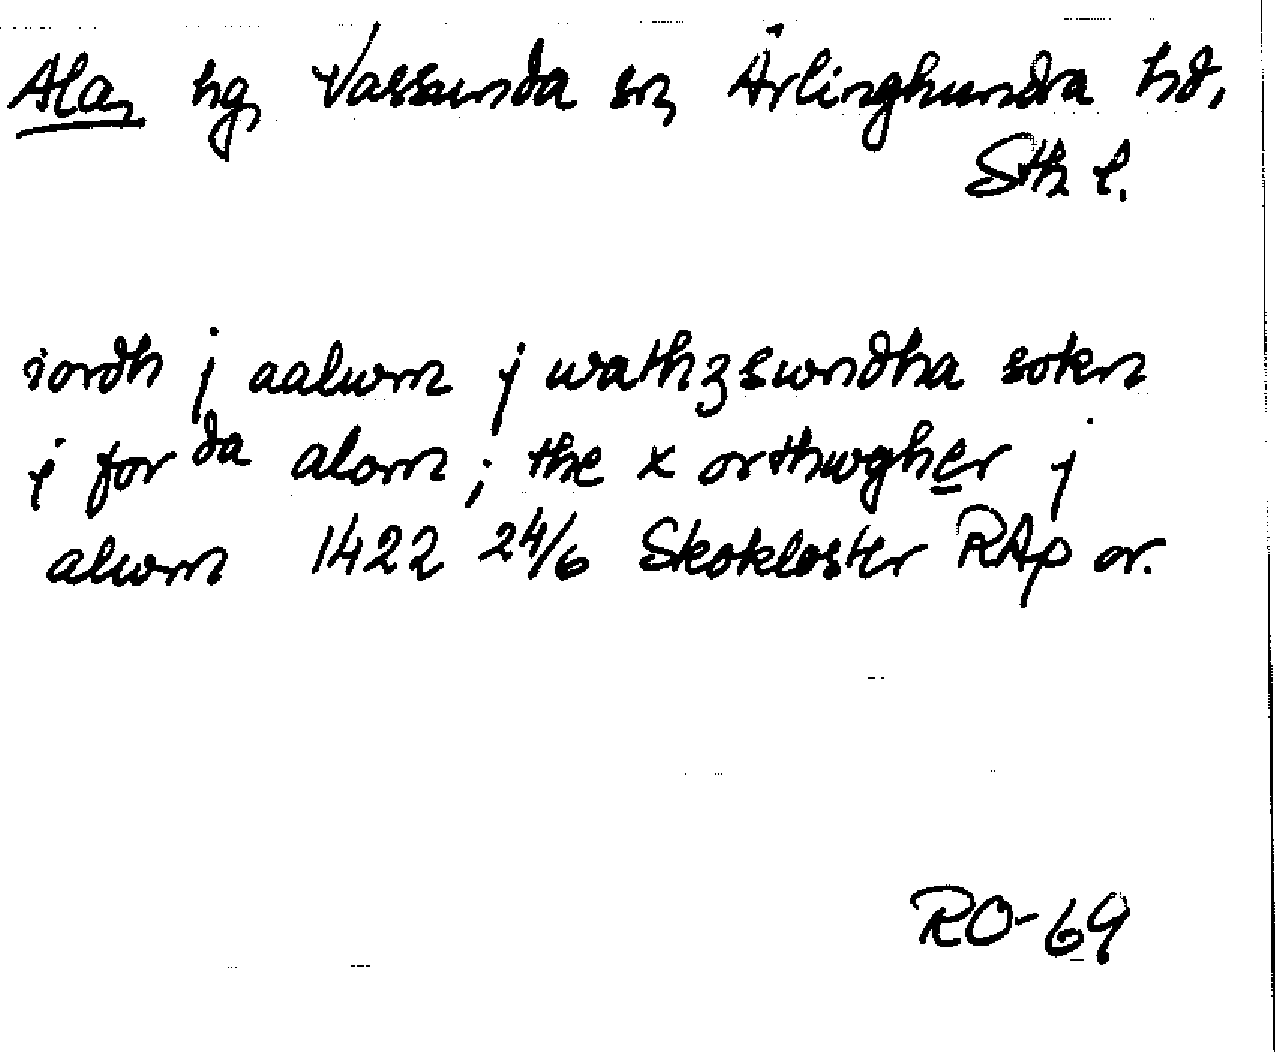 Ala, hg, Vassunda sn, Ärlinghundra hd,
Sth l.
iordh j aalwm j wathzswndha sokn
j for da alom ; the x orthwgher j
alwm 1422 24/6 Skokloster RAp or.
RO-69